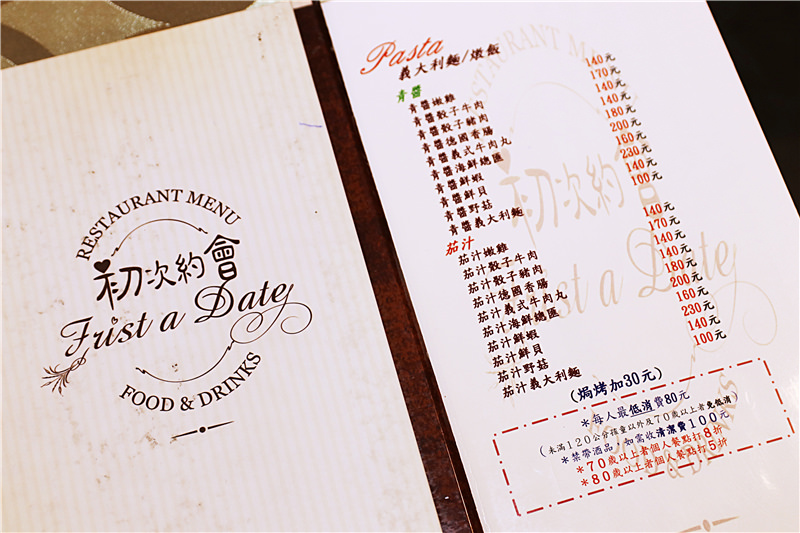 RESTAURANT MENU
初次約會
Frist a Date
FOOD & DRINKS
RESTAURANT MENU
初次約會
Pasta
義大利麵/燉飯
青醬
青醬嫩雞 140元
青醬骰子牛肉 170元
青醬骰子豬肉 140元
青醬德國香腸 140元
青醬義式牛肉丸 180元
青醬海鮮總匯 200元
青醬鮮蝦 160元
青醬鮮貝 230元
青醬野菇 140元
青醬義大利麵 100元
茄汁
茄汁嫩雞 140元
茄汁骰子牛肉 170元
茄汁骰子豬肉 140元
茄汁德國香腸 140元
茄汁義式牛肉丸 180元
茄汁海鮮總匯 200元
茄汁鮮蝦 160元
茄汁鮮貝 230元
茄汁野菇 140元
茄汁義大利麵 100元
(焗烤加30元)
*每人最低消費80元
(未滿120公分孩童以外及70歲以上者免低消)
*禁帶酒品,如需收清潔費100元
*70歲以上者個人餐點打8折
*80歲以上者個人餐點打5折